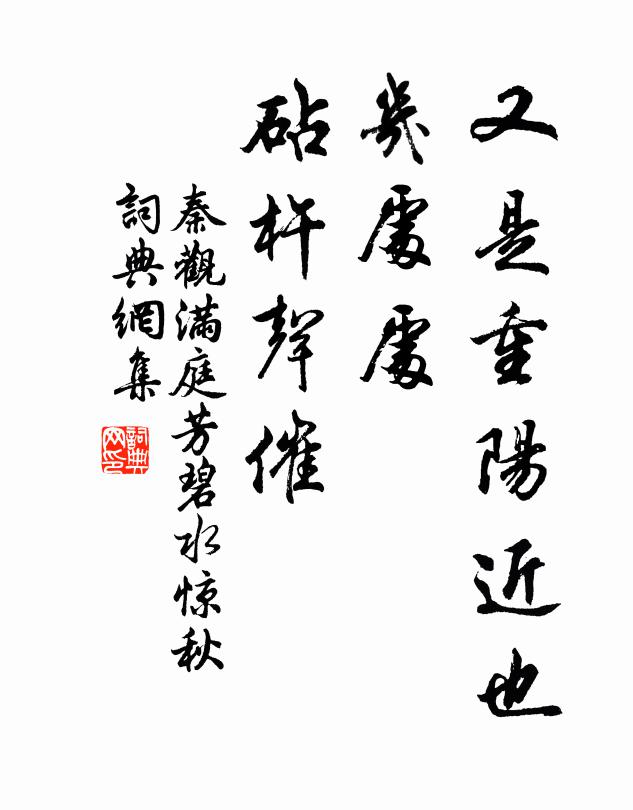 又是重陽近也
幾處處
砧杵聲催
秦觀滿庭芳碧水惊秋
詞典網集
詞典网印